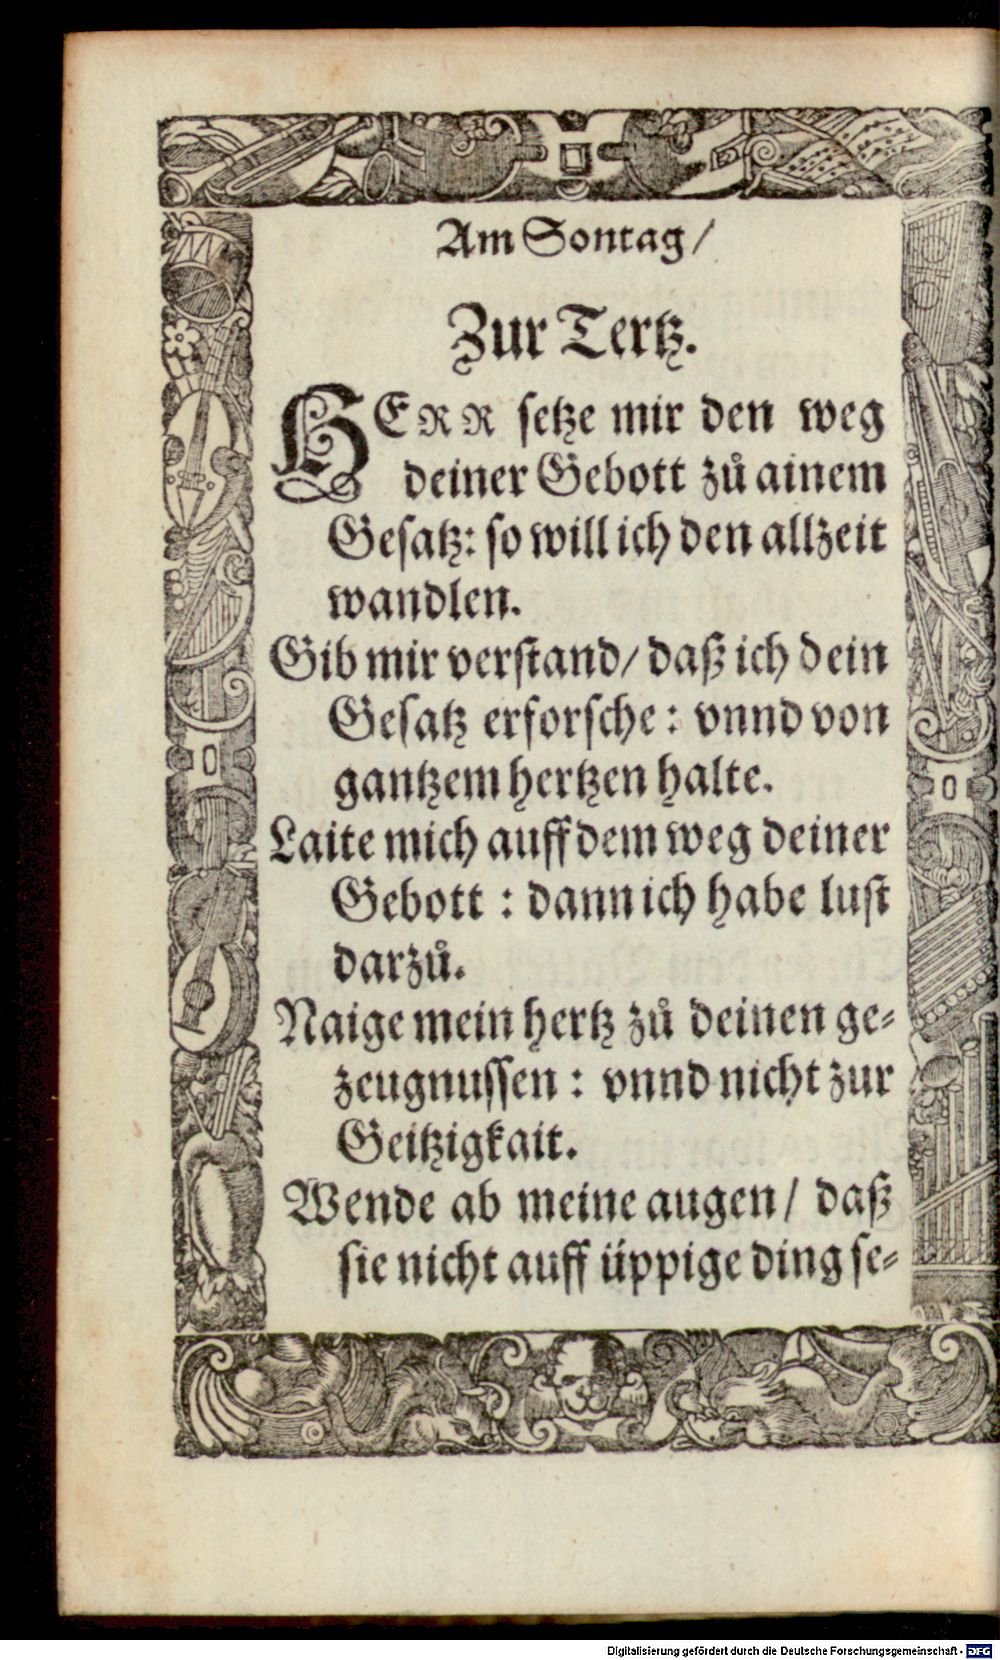 Am Sontag/
Zur Tertz.
HERR setze mir den weg
deiner Gebott zů ainem
Gesatz: so will ich den allzeit
wandlen.
Gib mir verstand/ daß ich dein
Gesatz erforsche: vnnd von
gantzem hertzen halte.
Laite mich auff dem weg deiner
Gebott: dann ich habe lust
darzů.
Naige mein hertz zů deinen ge⸗
zeugnussen: vnnd nicht zur
Geitzigkait.
Wende ab meine augen/ daß
sie nicht auff üppige ding se⸗
Digitalisierung gefördert durch die Deutsche Forschungsgemeinschaft - DFG